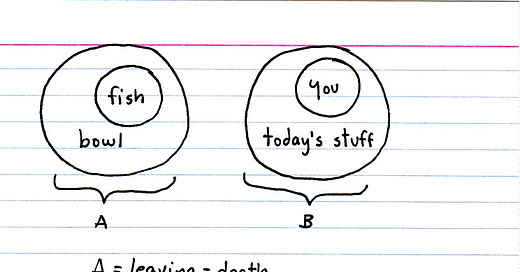 fish
you
bowl
today's stuff
A
B
A = leaving = death